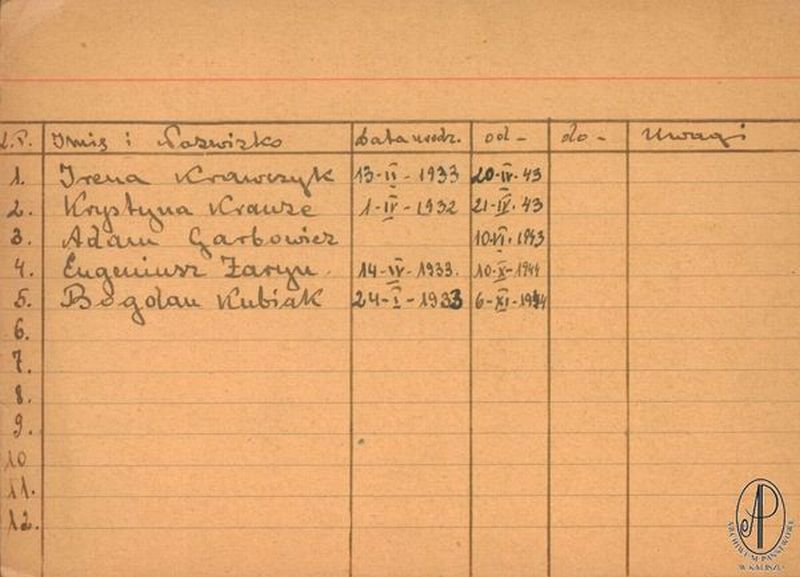 L.P. Imię i Nazwisko Data urodz. od - do - Uwagi
1. Irena Krawczyk 13-II-1933 20-IV-43
2. Krystyna Krauze 1-IV-1932 21-IX-43
3. Adam Garbowicz 10-VI-1943
4. Eugeniusz Zaryn 14-IV-1933. 10-X-1944
5. Bogdan Kubiak 24-I-1933 6-XI-1944
6.
7.
8.
9.
10
11.
12.
AP
ARCHIWUM PAŃSTWOWE
W KALISZU